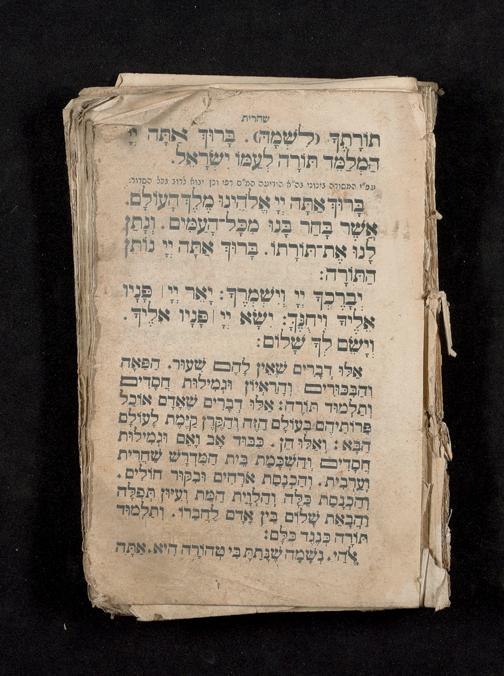 שחרית
תוֹרָתֶךָ (לִשְׁמָהּ). בָּרוּךְ אַתָּה יְיָ
הַמְלַמֵּד תּוֹרָה לְעַמּוֹ יִשְׂרָאֵל.
עפ״י המסורה
בָּרוּךְ אַתָּה יְיָ אֱלֹהֵינוּ מֶלֶךְ הָעוֹלָם.
אֲשֶׁר בָּחַר בָּנוּ מִכָּל־הָעַמִּים. וְנָתַן
לָנוּ אֶת־תּוֹרָתוֹ. בָּרוּךְ אַתָּה יְיָ נוֹתֵן
הַתּוֹרָה:
יְבָרֶכְךָ יְיָ וְיִשְׁמְרֶךָ: יָאֵר יְיָ ׀ פָּנָיו
אֵלֶיךָ וִיחֻנֶּךָּ: יִשָּׂא יְיָ ׀ פָּנָיו אֵלֶיךָ.
וְיָשֵׂם לְךָ שָׁלוֹם:
אֵלּוּ דְבָרִים שֶׁאֵין לָהֶם שִׁעוּר. הַפֵּאָה
וְהַבִּכּוּרִים וְהָרֵאָיוֹן וּגְמִילוּת חֲסָדִים
וְתַלְמוּד תּוֹרָה: אֵלּוּ דְבָרִים שֶׁאָדָם אוֹכֵל
פֵּרוֹתֵיהֶם בָּעוֹלָם הַזֶּה וְהַקֶּרֶן קַיֶּמֶת לָעוֹלָם
הַבָּא: וְאֵלּוּ הֵן. כִּבּוּד אָב וָאֵם וּגְמִילוּת
חֲסָדִים וְהַשְׁכָּמַת בֵּית הַמִּדְרָשׁ שַׁחֲרִית
וְעַרְבִית. וְהַכְנָסַת אֹרְחִים וּבִקּוּר חוֹלִים.
וְהַכְנָסַת כַּלָּה וְהַלְוָיַת הַמֵּת וְעִיּוּן תְּפִלָּה
וַהֲבָאַת שָׁלוֹם בֵּין אָדָם לַחֲבֵרוֹ. וְתַלְמוּד
תּוֹרָה כְּנֶגֶד כֻּלָּם:
אֱלֹהַי. נְשָׁמָה שֶׁנָּתַתָּ בִּי טְהוֹרָה הִיא. אַתָּה